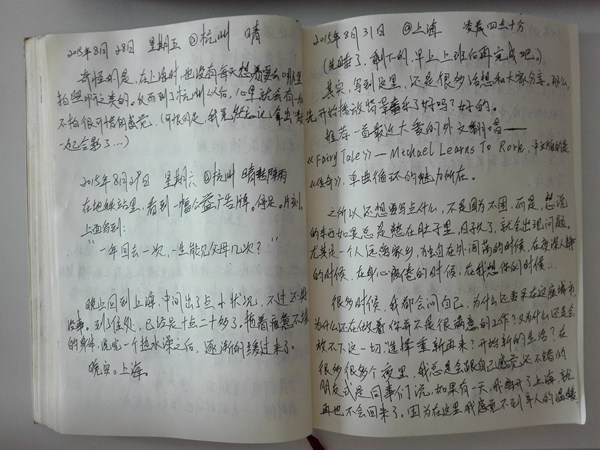 2015年8月28日 星期五 @杭州 晴
奇怪的是，在上海时也没有每天想着要去哪里
拍照啊之类的。反而到了杭州以后，心里就会有一
不拍很可惜的感觉。（可恨的是，我竟然忘记拿出
一起合影了…）
2015年8月29日 星期六 @杭州 晴转阵雨
在地铁站里，看到一幅公益广告牌。停足，片刻。
上面写到：
“一年回去一次，一生能见父母几次？”
晚上回到上海，中间出了点小状况，不过还是
没事。到了住处，已经是十点二十多了，拖着疲惫不堪
的身体，洗完一个热水澡之后，逐渐的缓过来了。
晚安。上海。
2015年8月31日 @上海 凌晨四点十分
（先睡了，剩下的，早上上班后再完成吧。）
其实，写到这里，还是很多话想和大家分享，那么，
先开始播放背景音乐了好吗？好的。
推荐一首最近大爱的外文翻唱——
《Fairy Tale》— Michael Learns To Rock，中文版的是
《童话》，单曲循环的魅力所在。
之所以还想要写点什么，不是因为不困，而是，想说
的东西如果总是憋在肚子里，日子久了，就会出现问题。
尤其是一个人远离家乡，独自在外闯荡的时候，在夜深人静
的时候，在身心疲惫的时候，在我想你的时候…
很多时候，我都会问自己，为什么还要呆在这座城市，
为什么还在做着你并不是很满意的工作？又为什么还是会
放不下这一切选择重新再来？开始新的生活？在
很多很多个夜里，我总是会跟自己感觉还不错的
朋友或是同事们说，如果有一天，我离开了上海，就
再也不会回来了。因为在这里，我感觉不到家人的温暖